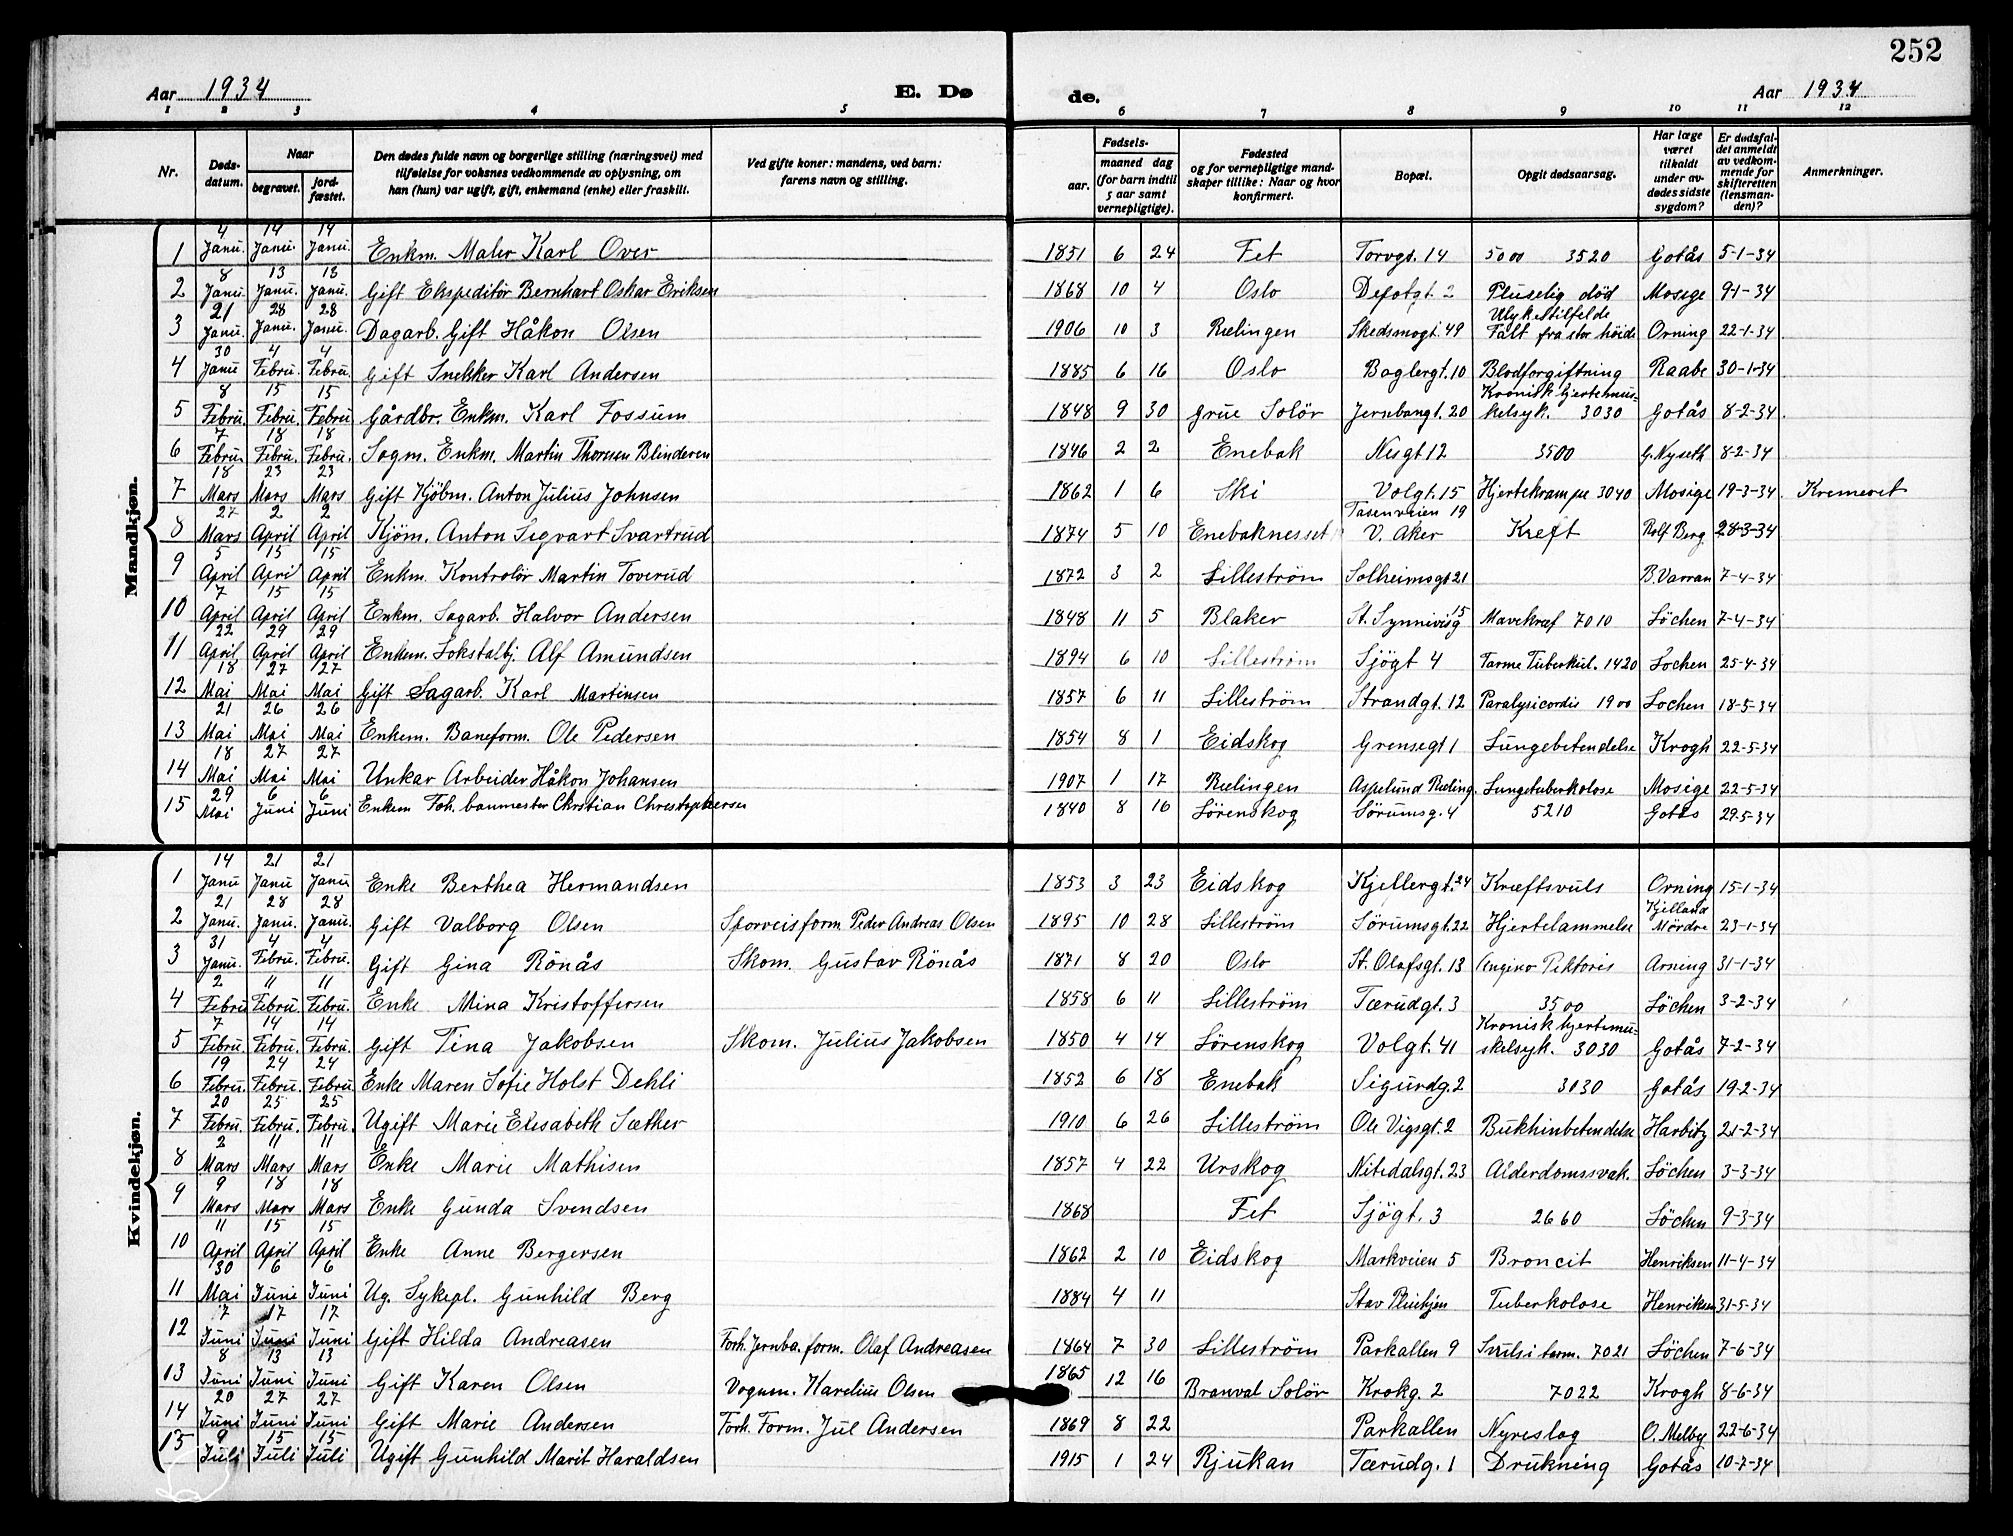 252
Aar 1934 E. Døde. Aar 1934
1 2 3 4 5 6 7 8 9 10 11 12
Nr. Døds-datum. Naar begravet. jord-fæstet. Den dødes fulde navn og borgerlige stilling (næringsvei) med tilføielse for voksnes vedkommende av oplysning, om han (hun) var ugift, gift, enkemand (enke) eller fraskilt. Ved gifte koner: mandens, ved barn: farens navn og stilling. Fødsels- aar. maaned dag (for barn indtil 5 aar samt vernepligtige). Fødested og for vernepligtige mand-skaper tillike: Naar og hvor konfirmert. Bopæl. Opgit dødsaarsag. Har læge været tilkaldt under av-dødes sidste sygdom? Er dødsfal-det anmeldt av vedkom-mende for skifteretten (lensman-den)? Anmerkninger.
Mandkjøn.
1 4 Janu. 14 Janu. 14 Janu. Enkm. Maler Karl Over 1851 6 24 Fet Torvgt. 14 5000 3520 Gotås 5-1-34
2 8 Janu. 13 Janu. 13 Janu. Gift Ekspeditör Bernhart Oskar Eriksen 1868 10 4 Oslo Depotgt. 2 Pluselig död Mosige 9-1-34
3 21 Janu. 28 Janu. 28 Janu. Dagarb. Gift Håkon Olsen 1906 10 3 Rælingen Skedsmogt. 49 Ulykestilfelde Falt fra stor höide Orning 22-1-34
4 30 Janu 4 Febru. 4 Febru. Gift Snekker Karl Andersen 1885 6 16 Oslo Baglergt. 10 Blodforgiftning Raabe 30-1-34
5 8 Febru. 15 Febru. 15 Febru. Gårdbr. Enkm. Karl Fossum 1848 9 30 Grue Solör Jernbangt. 20 Kronisk hjertemus-kelsyk. 3030 Gotås 8-2-34
6 7 Febru. 18 Febru. 18 Febru. Sagm. Enkm. Martin Thorssen Blinderen 1846 2 2 Enebak Nesgt 12 3500 G. Nyseth 8-2-34
7 18 Mars 23 Mars 23 Mars Gift Kjöbm. Anton Julius Johnsen 1862 1 6 Ski Volgt. 15 Hjertekrampe 3040 Mosige 19-3-34 Kremeret
8 27 Mars 2 April 2 April Kjöm. Anton Sigvart Svartrud 1874 5 10 Enebaknesset Tasenveien 19 V. Aker Kreft Rolf Berg 28-3-34
9 5 April 15 April 15 April Enkm. Kontrolör Martin Toverud 1872 3 2 Lilleström Solheimsgt 21 B. Varran 7-4-34
10 7 April 15 April 15 April Enkm. Sagarb. Halvor Andersen 1848 11 5 Blaker St. Synnivisg 15 Mavekræf 7010 Löchen 7-4-34
11 22 April 29 April 29 April Enkem. Lokstalbj. Alf Amundsen 1894 6 10 Lilleström Sjögt 4 Tarme Tuberkul. 1420 Lochen 25-4-34
12 18 Mai 27 Mai 27 Mai Gift Sagarb. Karl Martinsen 1857 6 11 Lilleström Strandgt. 12 Paralysicordis 1900 Lochen 18-5-34
13 21 Mai 26 Mai 26 Mai Enkem. Baneform. Ole Pedersen 1854 8 1 Eidskog Grensegt 1 Lungebetendelse Krogh 22-5-34
14 18 Mai 27 Mai 27 Mai Unkar Arbeider Håkon Johansen 1907 1 17 Rælingen Aspelund Ræling. Lungetuberkolose Mosige 22-5-34
15 29 Mai 6 Juni 6 Juni Enkem Foh. banmester Chrstian Christophersen 1840 8 16 Lörenskog Sörumsg. 4 5210 Gotås 29-5-34
Kvindekjøn.
1 14 Janu 21 Janu 21 Janu Enke Berthea Hermandsen 1853 3 23 Eidskog Kjellergt. 24 Kræftsvuls Orning 15-1-34
2 21 Janu. 28 Janu. 28 Janu. Gift Valborg Olsen Sporveisform Peder Andreas Olsen 1895 10 28 Lilleström Sörumsgt. 22 Hjertelammelse Kjelland Mördre 23-1-34
3 31 Janu. 4 Febru. 4 Febru. Gift Gina Rönås Skom. Gustav Rönås 1871 8 20 Oslo St. Olafsgt. 13 Angina Pektoris Arning 31-1-34
4 2 Febru 11 Febru. 11 Febru. Enke Mina Kristoffersen 1858 6 11 Lilleström Tærudgt. 3 3500 Löchen 3-2-34
5 7 Febru. 14 Febru. 14 Febru. Gift Tina Jakobsen Skom. Julius Jakobsen 1850 4 14 Lörenskog Volgt. 41 Kronisk hjertemu-skelsyk. 3030 Gotås 7-2-34
6 19 Febru. 24 Febru. 24 Febru. Enke Maren Sofie Holst Dehli 1852 6 18 Enebak Sigurdg. 2 3030 Gotås 19-2-34
7 20 Febru. 25 Febru. 25 Febru. Ugift Marie Elisabeth Sæther 1910 6 26 Lilleström Ole Vigsgt. 2 Bukhinbetendelse Harbitz 21-2-34
8 2 Mars 11 Mars 11 Mars Enke Marie Mathisen 1857 4 22 Urskog Nitedalsgt. 23 Alderdomssvak. Löchen 3-3-34
9 9 Mars 18 Mars 18 Mars Enke Gunda Svendsen 1868 Fet Sjögt. 3 2660 Löchen 9-3-34
10 11 April 15 April 15 April Enke Anne Bergersen 1862 2 10 Eidskog Markveien 5 Broncit Henriksen 11-4-34
11 30 Mai 6 Juni 6 Juni Ug. Sykepl. Gunhild Berg 1884 4 11 Stav Pleiehjen Tuberkolose Henriksen 31-5-34
12 7 Juni 17 Juni 17 Juni Gift Hilda Andreasen Forh. Jernba. form. Olaf Andreasen 1864 7 30 Lilleström Parkallen 9 Svuls i tarm. 7021 Löchen 7-6-34
13 8 Juni 13 Juni 13 Juni Gift Karen Olsen Vognm. Karelius Olsen 1865 12 16 Branval Solör Krokg. 2 7022 Krogh 8-6-34
14 20 Juni 27 Juni 27 Juni Gift Marie Andersen Forh. Form. Jul Andersen 1869 8 22 Parkallen Nyreslag O. Melby 22-6-34
15 9 Juli 15 Juli 15 Juli Ugift Gunhild Marit Haraldsen 1915 1 24 Rjukan Tærudg. 1 Drukning Gotås 10-7-34